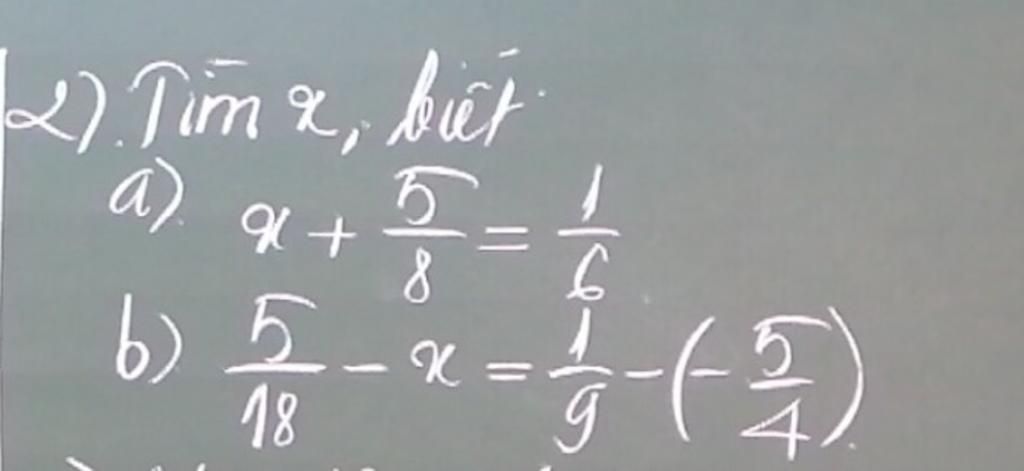 2). Tìm x, biết
a) x + 5/8 = 1/6
b) 5/18 - x = 1/9 - (- 5/4)